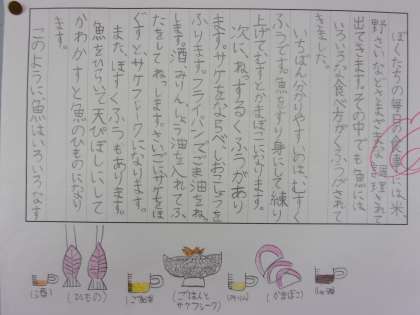 ぼくたちの毎日の食事には米、
野さいなどさまざまな調理されて
出てきます。その中でも魚には
いろいろな食べ方がくふうされて
きました。
いちばん分かりやすいのはむすく
ふうです。魚をすり身にして練り
上げてむすとかまぼこになります。
次に、ねっするくふうがあり
ます。サケをならべしおこしょうを
ふります。フライパンでごま油をね
します。酒、みりん、しょう油を入れてふ
たをしてねっします。さいごにサケをほ
ぐすと、サケフレークになります。
また、ほすくふうもあります。
魚をひらいて天ぴぼしにして
かわかすと魚のひものになり
ます。
このように魚はいろいろなす
(酒)
(ひもの)
(ごま油)
(ごはんと
サケフレーク)
(みりん)
(かまぼこ)
(しょう油)